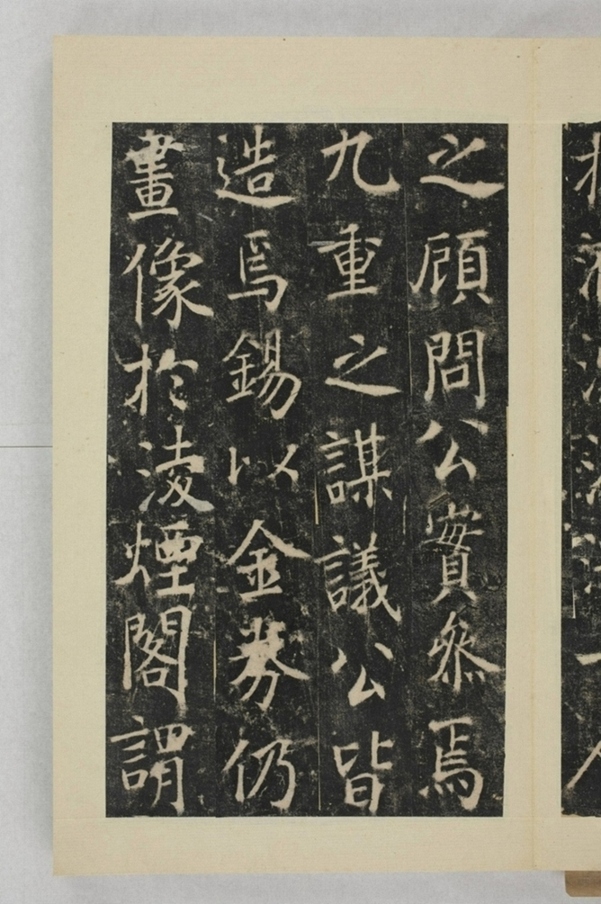 之顧問公實叅焉
九重之謀議公皆
造焉錫以金券仍
畫像於淩煙閣謂